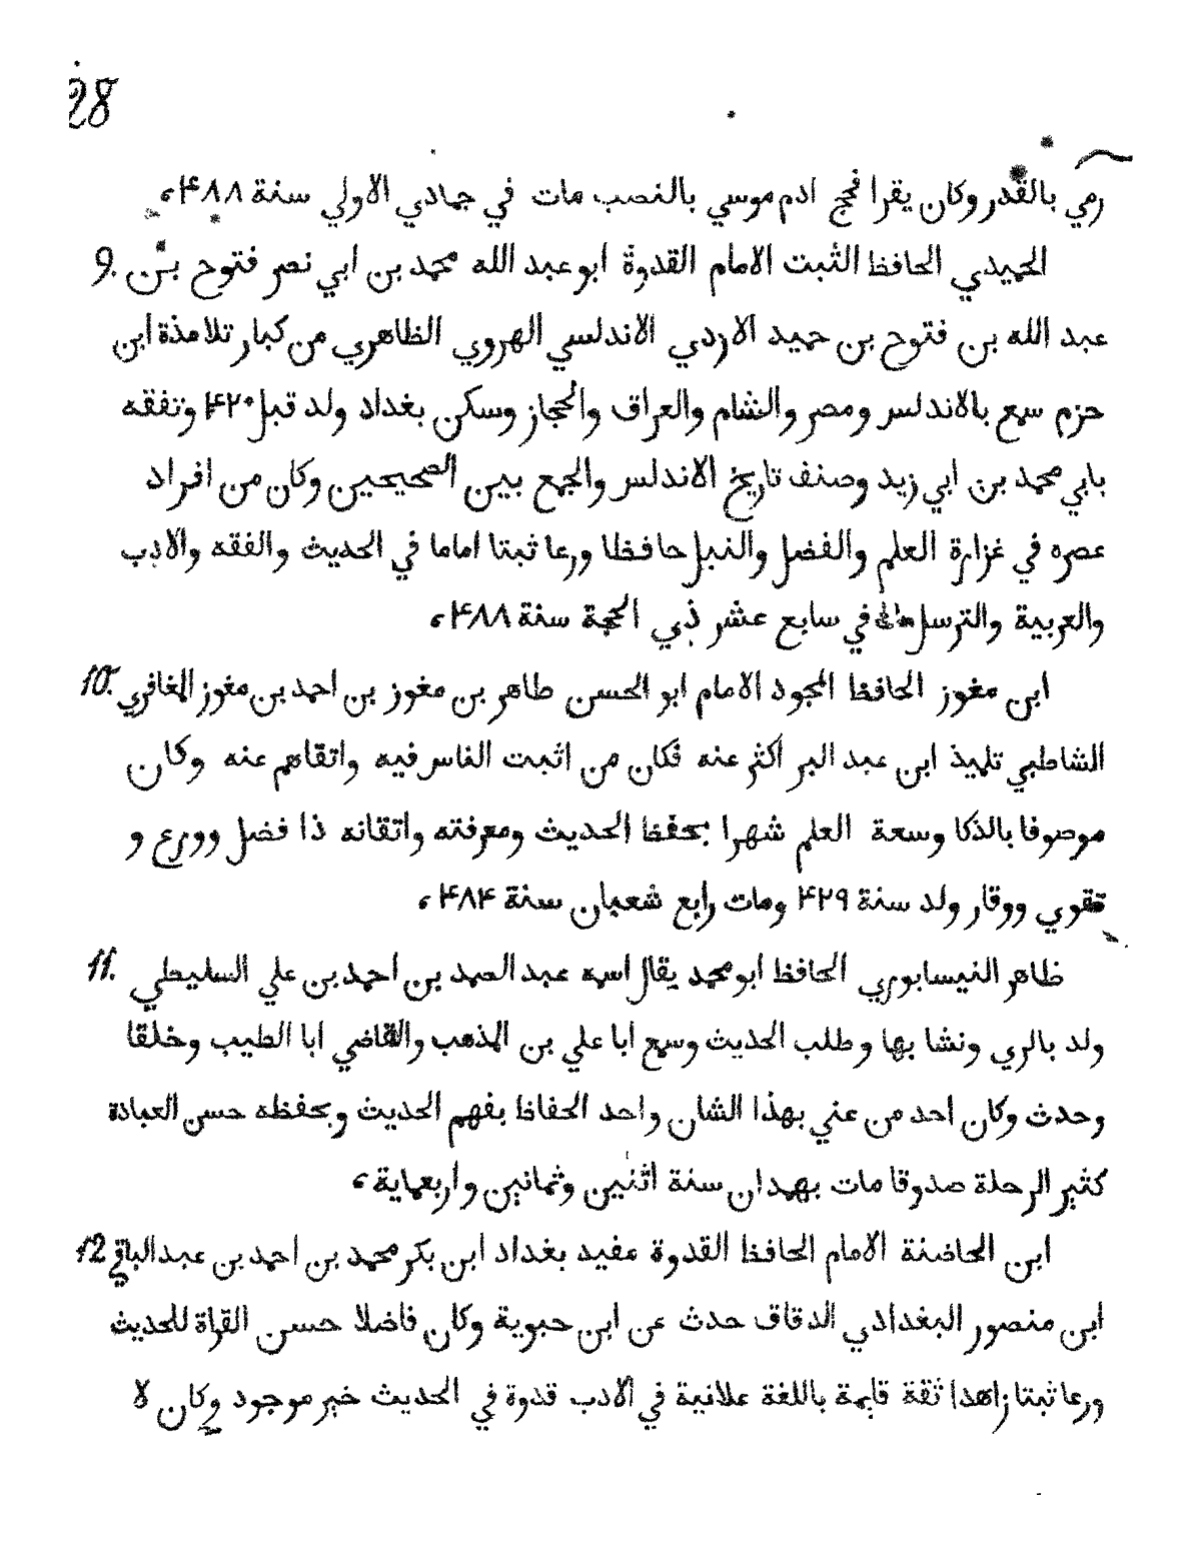 28
رمي بالقدر وكان يقرا فحج ادم موسي بالنصب مات في جمادي الاولي سنة ۴۸۸ء
9. الحميدي الحافظ الثبت الامام القدوة ابو عبد الله محمد بن ابي نصر فتوح بن
عبد الله بن فتوح بن حميد الازدي الاندلسي الهروي الظاهري من كبار تلامذة ابن
حزم سمع بالاندلس ومصر والشام والعراق والحجاز وسكن بغداد ولد قبل ۴۲۰ وتفقه
بابي محمد بن ابي زيد وصنف تاريخ الاندلس والجمع بين الصحيحين وكان من افراد
عصره في غزارة العلم والفضل والنبل حافظا ورعا ثبتا اماما في الحديث والفقه والادب
والعربية والترسل في سابع عشر ذي الحجة سنة ۴۸۸ء
10. ابن مغوز الحافظ المجود الامام ابو الحسن طاهر بن مغوز بن احمد بن مغوز المغافري
الشاطبي تلميذ ابن عبد البر اكثر عنه فكان من اثبت الناس فيه واتقاهم عنه وكان
موصوفا بالذكا وسعة العلم شهرا بحفظ الحديث ومعرفته واتقانه ذا فضل وورع و
تقوي ووقار ولد سنة ۴۲۹ ومات رابع شعبان سنة ۴۸۴ء
11. ظاهر النيسابوري الحافظ ابو محمد يقال اسمه عبد الصمد بن احمد بن علي السليطي
ولد بالري ونشا بها وطلب الحديث وسمع ابا علي بن المذهب والقاضي ابا الطيب وخلقا
وحدث وكان احد من عني بهذا الشان واحد الحفاظ بفهم الحديث وبحفظه حسن العبادة
كثير الرحلة صدوقا مات بهمدان سنة اثنين وثمانين واربعماية ء
12 ابن الحاضنة الامام الحافظ القدوة مفيد بغداد ابن بكر محمد بن احمد بن عبد الباقي
ابن منصور البغدادي الدقاق حدث عن ابن حبوية وكان فاضلا حسن القراة للحديث
ورعا ثبتا زاهدا ثقة قايمة باللغة علانية في الادب قدوة في الحديث خير موجود وكان لا